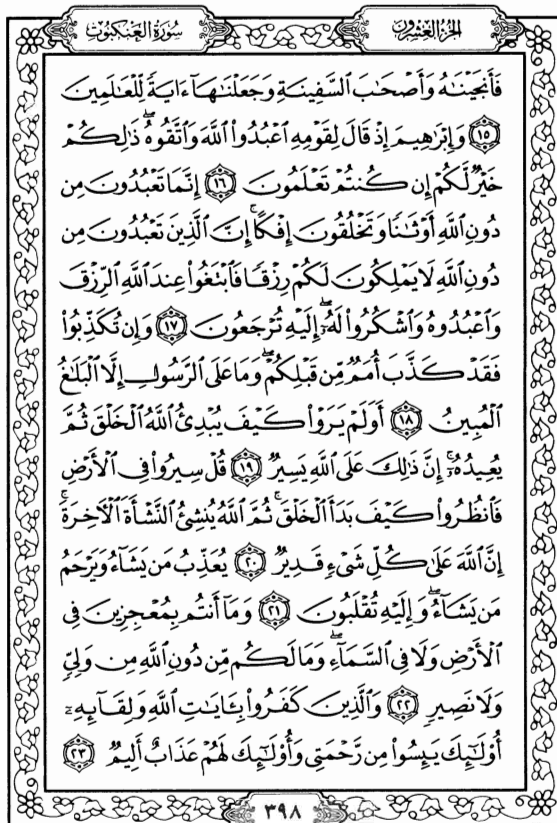 سُورَةُ العَنكبُوتِ
الجُزءُ العِشرُونَ
فَأَنجَيْنَٰهُ وَأَصْحَٰبَ ٱلسَّفِينَةِ وَجَعَلْنَٰهَآ ءَايَةً لِّلْعَٰلَمِينَ
١٥ وَإِبْرَٰهِيمَ إِذْ قَالَ لِقَوْمِهِ ٱعْبُدُوا۟ ٱللَّهَ وَٱتَّقُوهُ ۖ ذَٰلِكُمْ
خَيْرٌ لَّكُمْ إِن كُنتُمْ تَعْلَمُونَ ١٦ إِنَّمَا تَعْبُدُونَ مِن
دُونِ ٱللَّهِ أَوْثَٰنًا وَتَخْلُقُونَ إِفْكًا ۚ إِنَّ ٱلَّذِينَ تَعْبُدُونَ مِن
دُونِ ٱللَّهِ لَا يَمْلِكُونَ لَكُمْ رِزْقًا فَٱبْتَغُوا۟ عِندَ ٱللَّهِ ٱلرِّزْقَ
وَٱعْبُدُوهُ وَٱشْكُرُوا۟ لَهُۥٓ ۖ إِلَيْهِ تُرْجَعُونَ ١٧ وَإِن تُكَذِّبُوا۟
فَقَدْ كَذَّبَ أُمَمٌ مِّن قَبْلِكُمْ ۖ وَمَا عَلَى ٱلرَّسُولِ إِلَّا ٱلْبَلَٰغُ
ٱلْمُبِينُ ١٨ أَوَلَمْ يَرَوْا۟ كَيْفَ يُبْدِئُ ٱللَّهُ ٱلْخَلْقَ ثُمَّ
يُعِيدُهُۥٓ ۚ إِنَّ ذَٰلِكَ عَلَى ٱللَّهِ يَسِيرٌ ١٩ قُلْ سِيرُوا۟ فِى ٱلْأَرْضِ
فَٱنظُرُوا۟ كَيْفَ بَدَأَ ٱلْخَلْقَ ۚ ثُمَّ ٱللَّهُ يُنشِئُ ٱلنَّشْأَةَ ٱلْءَاخِرَةَ ۚ
إِنَّ ٱللَّهَ عَلَىٰ كُلِّ شَىْءٍ قَدِيرٌ ٢٠ يُعَذِّبُ مَن يَشَآءُ وَيَرْحَمُ
مَن يَشَآءُ ۖ وَإِلَيْهِ تُقْلَبُونَ ٢١ وَمَآ أَنتُم بِمُعْجِزِينَ فِى
ٱلْأَرْضِ وَلَا فِى ٱلسَّمَآءِ ۖ وَمَا لَكُم مِّن دُونِ ٱللَّهِ مِن وَلِىٍّ
وَلَا نَصِيرٍ ٢٢ وَٱلَّذِينَ كَفَرُوا۟ بِـَٔايَٰتِ ٱللَّهِ وَلِقَآئِهِۦٓ
أُو۟لَٰٓئِكَ يَئِسُوا۟ مِن رَّحْمَتِى وَأُو۟لَٰٓئِكَ لَهُمْ عَذَابٌ أَلِيمٌ ٢٣
٣٩٨